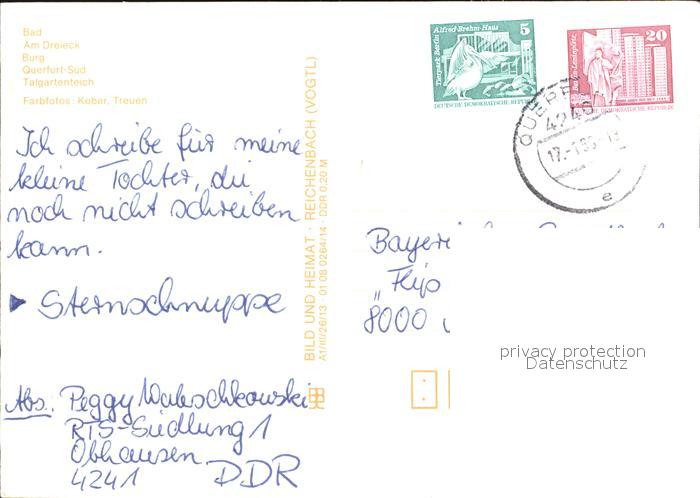 Bad
Am Dreieck
Burg
Querfurt-Süd
Talgartenteich
Farbfotos: Kober, Treuen
Ich schreibe für meine
kleine Tochter, die
noch nicht schreiben
kann.
▶ Sternschnuppe
Abs. Peggy
RTS-Siedlung 1
Obhausen
4241 DDR
BILD UND HEIMAT · REICHENBACH (VOGTL)
A1/III/26/13 · 01 08 0264/14 · DDR 0,20 M
Tierpark Berlin
Alfred-Brehm-Haus
5
DEUTSCHE DEMOKRATISCHE REPUBLIK
Berlin, Leninplatz
20
DEUTSCHE DEMOKRATISCHE REPUBLIK
QUERF
424
17.-1.
e
Bayeri
„Flip
8000
privacy protection
Datenschutz